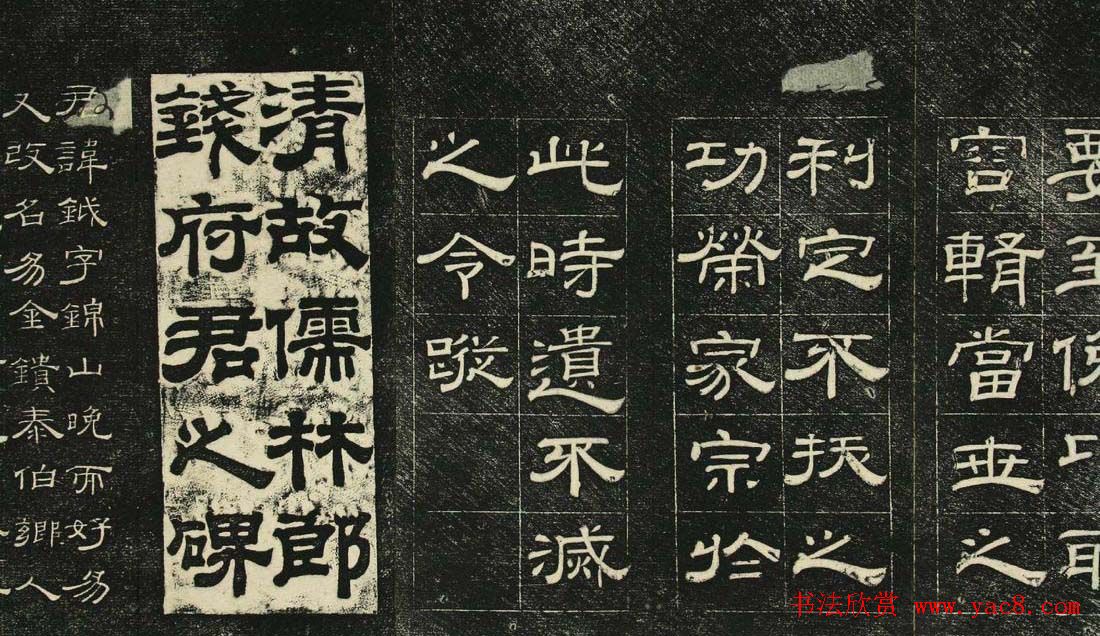 要至
輯當世之
利定不扶之
功榮家宗於
此時遺不滅
之令蹤
清故儒林郎
錢府君之碑
君諱鉞字錦山晚而好易
又改名易金鐀泰伯鄉人
书法欣赏 www.yac8.com